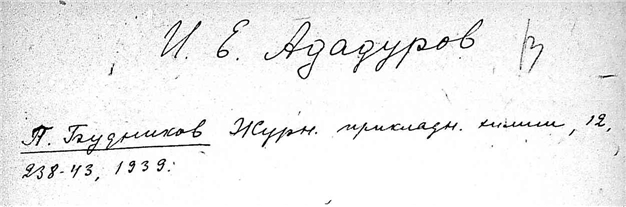 И. Е. Ададуров
П. Будников Журн. прикладн. химии, 12,
238-43, 1939.